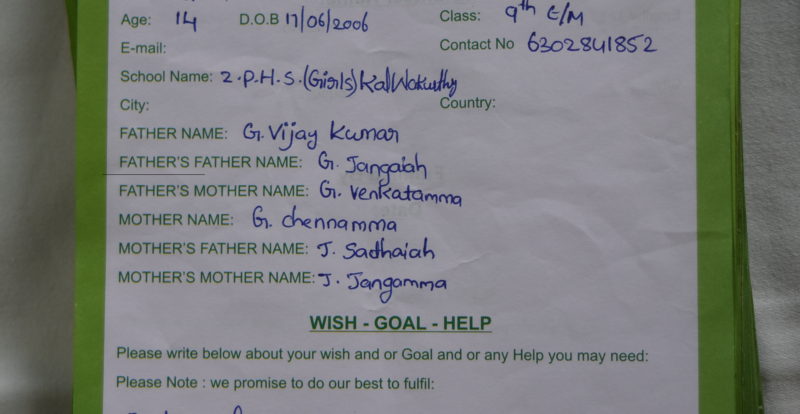 Age: 14 D.O.B 17/06/2006 Class: 9th E/M
E-mail: Contact No 6302841852
School Name: Z.P.H.S.(Girls) Kalwakurthy
City: Country:
FATHER NAME: G. Vijay Kumar
FATHER'S FATHER NAME: G. Jangaiah
FATHER'S MOTHER NAME: G. Venkatamma
MOTHER NAME: G. chennamma
MOTHER'S FATHER NAME: J. Sadhaiah
MOTHER'S MOTHER NAME: J. Jangamma
WISH - GOAL - HELP
Please write below about your wish and or Goal and or any Help you may need:
Please Note : we promise to do our best to fulfil: